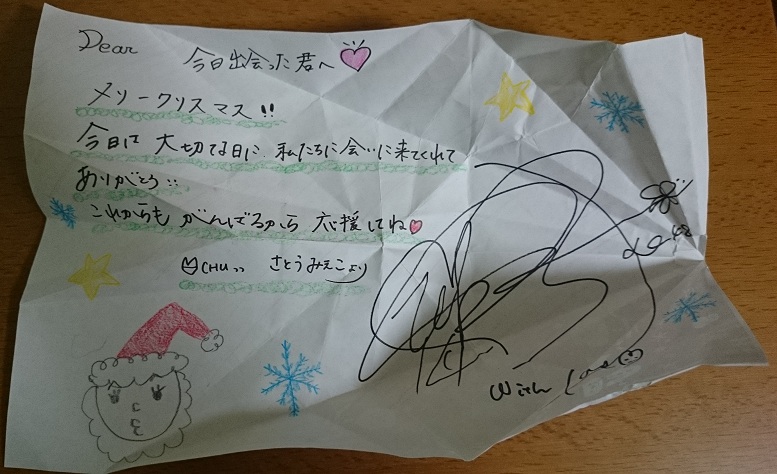 Dear
今日出会った君へ
メリークリスマス!!
今日は 大切な日に、私たちに会いに来てくれて
ありがとう!!
これからも がんばるから 応援してね
CHUッッ さとうみえこより
With Love